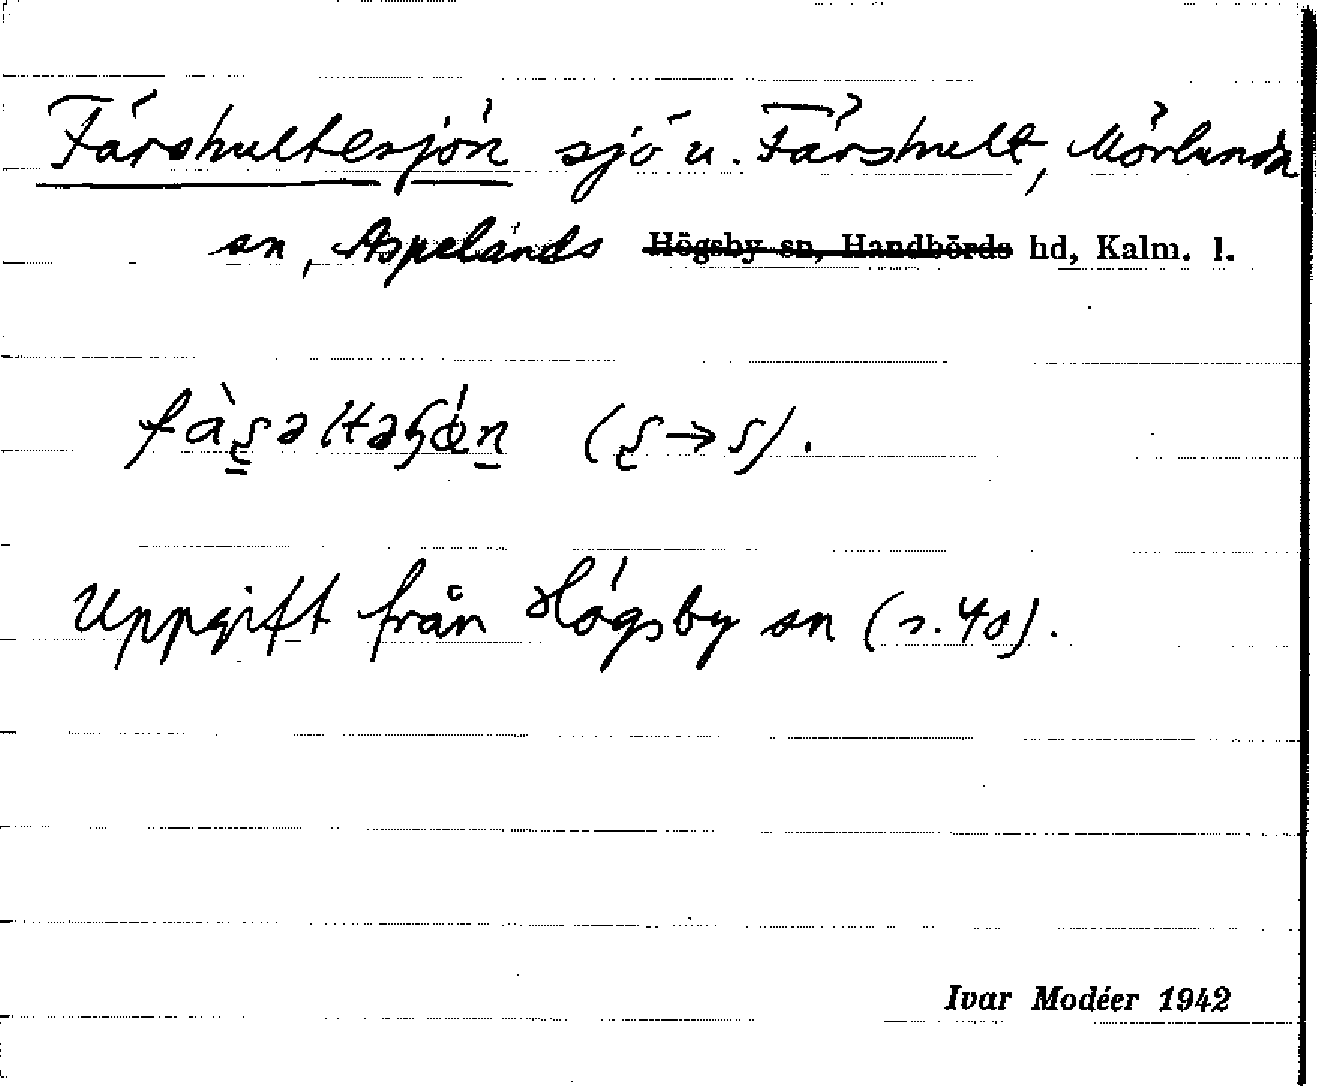 Fårshultesjön sjö u. Fårshult, Mörlunda
sn, Aspelands Högsby sn, Handbörds hd, Kalm. l.
Uppgift från Högsby sn (s. 40).
Ivar Modéer 1942